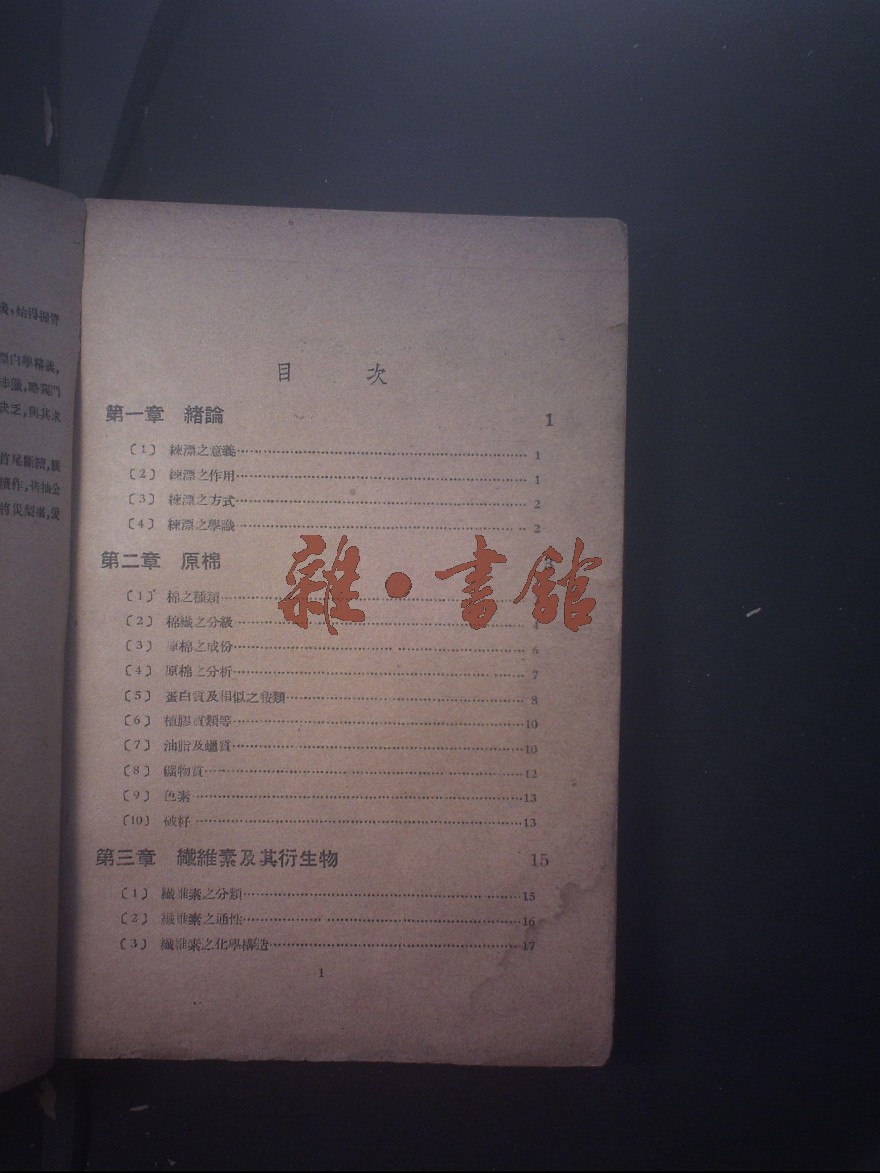 後，始得握管
漂白學精義，
缺乏，與其求
首尾斷續，
目 次
第一章 緒論 1
〔1〕 練漂之意義 1
〔2〕 練漂之作用 1
〔3〕 練漂之方式 2
〔4〕 練漂之學識 2
第二章 原棉
〔1〕 棉之種類
〔2〕 棉纖之分級 4
〔3〕 原棉之成份 6
〔4〕 原棉之分析 7
〔5〕 蛋白質及相似之 類 8
〔6〕 植膠質類等 10
〔7〕 油脂及蠟質 10
〔8〕 礦物質 12
〔9〕 色素 13
〔10〕 破籽 13
第三章 纖維素及其衍生物 15
〔1〕 纖維素之分類 15
〔2〕 纖維素之通性 16
〔3〕 纖維素之化學構造 17
1
雜·書館